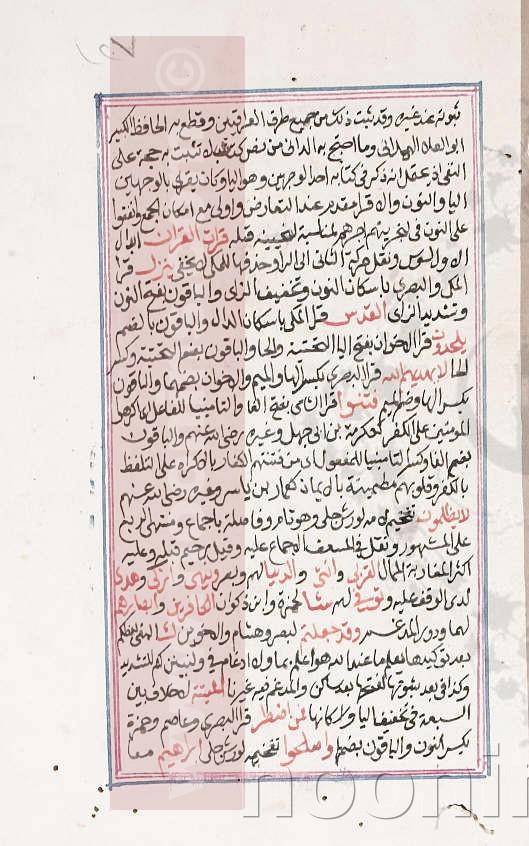 ثبوته عند غيره وقد ثبت ذلك من جميع طرق العراقيين وقطع به الحافظ الكبير
ابو العلاء الهمداني وما احتج به الداني من نص تثبت به حجة على
النقاش انه ذكر في كتابه احد الوجهين وهو اليا وكان يقرئ بالوجهين
اليا والنون والاقرا مقدم عند التعارض واولى مع امكان الجمع واتفقوا
على النون في نجزينهم اجرهم لمناسبة قبله قرات القران ابدال
الاول للسوسي ونقل حركة الثاني الى الرا وحذفها للمكي لا يخفى ينزل قرا
المكي والبصري باسكان النون وتخفيف الزاي والباقون بفتح النون
وتشديد الزاي القدس قرا المكي باسكان الدال والباقون بالضم
يلحدون قرا الاخوان بفتح اليا التحتية والحا والباقون بضم التحتية وكسر
الحا لا يهديهم الله قرا البصري بكسر الها والميم والاخوان بضمهما والباقون
بكسر الها وضم الميم فتنوا قرا الشامي بفتح الفا والتا مبنيا للفاعل اي اكرهوا
المومنين على الكفر كعكرمة بن ابي جهل وغيره رضي الله عنهم والباقون
بضم الفا وكسر التا مبنيا للمفعول اي من فتنهم الكفار بالاكراه على التلفظ
بالكفر وقلوبهم مطمينة بالايمان كعمار بن ياسر وغيره رضي الله عنهم
لا يظلمون تفخيم لامه لورش جلي وهو تام وفاصلة باجماع ومنتهى الربع
على المشهور ونقل في المسعف الاجماع عليه وقيل رحيم قبله وعليه
اكثر المغاربة الممال القربى وانثى والدنيا لهم وبصر وينهى واربى وهدى
لدى الوقف عليه وتوفى لهم شا لحمزة وابن ذكوان الكافرين وابصارهم
لهما ودور المدغم وقد جعلتم لبصر وهشام والاخوين ك البغي يعظكم
بعد توكيدها يعلم ما عند الله هو اعلم بما ولا ادغام في ولنبينن لكم للتشديد
وكذا في بعد ثبوتها لفتحها بعد ساكن والمدغم فيه غيرنا الميتة لا خلاف بين
السبعة في تخفيف اليا واسكانها فمن اضطر قرا البصري وعاصم وحمزة
بكسر النون والباقون بضمها واصلحوا تفخيمه لورش جلي ابرهيم معا